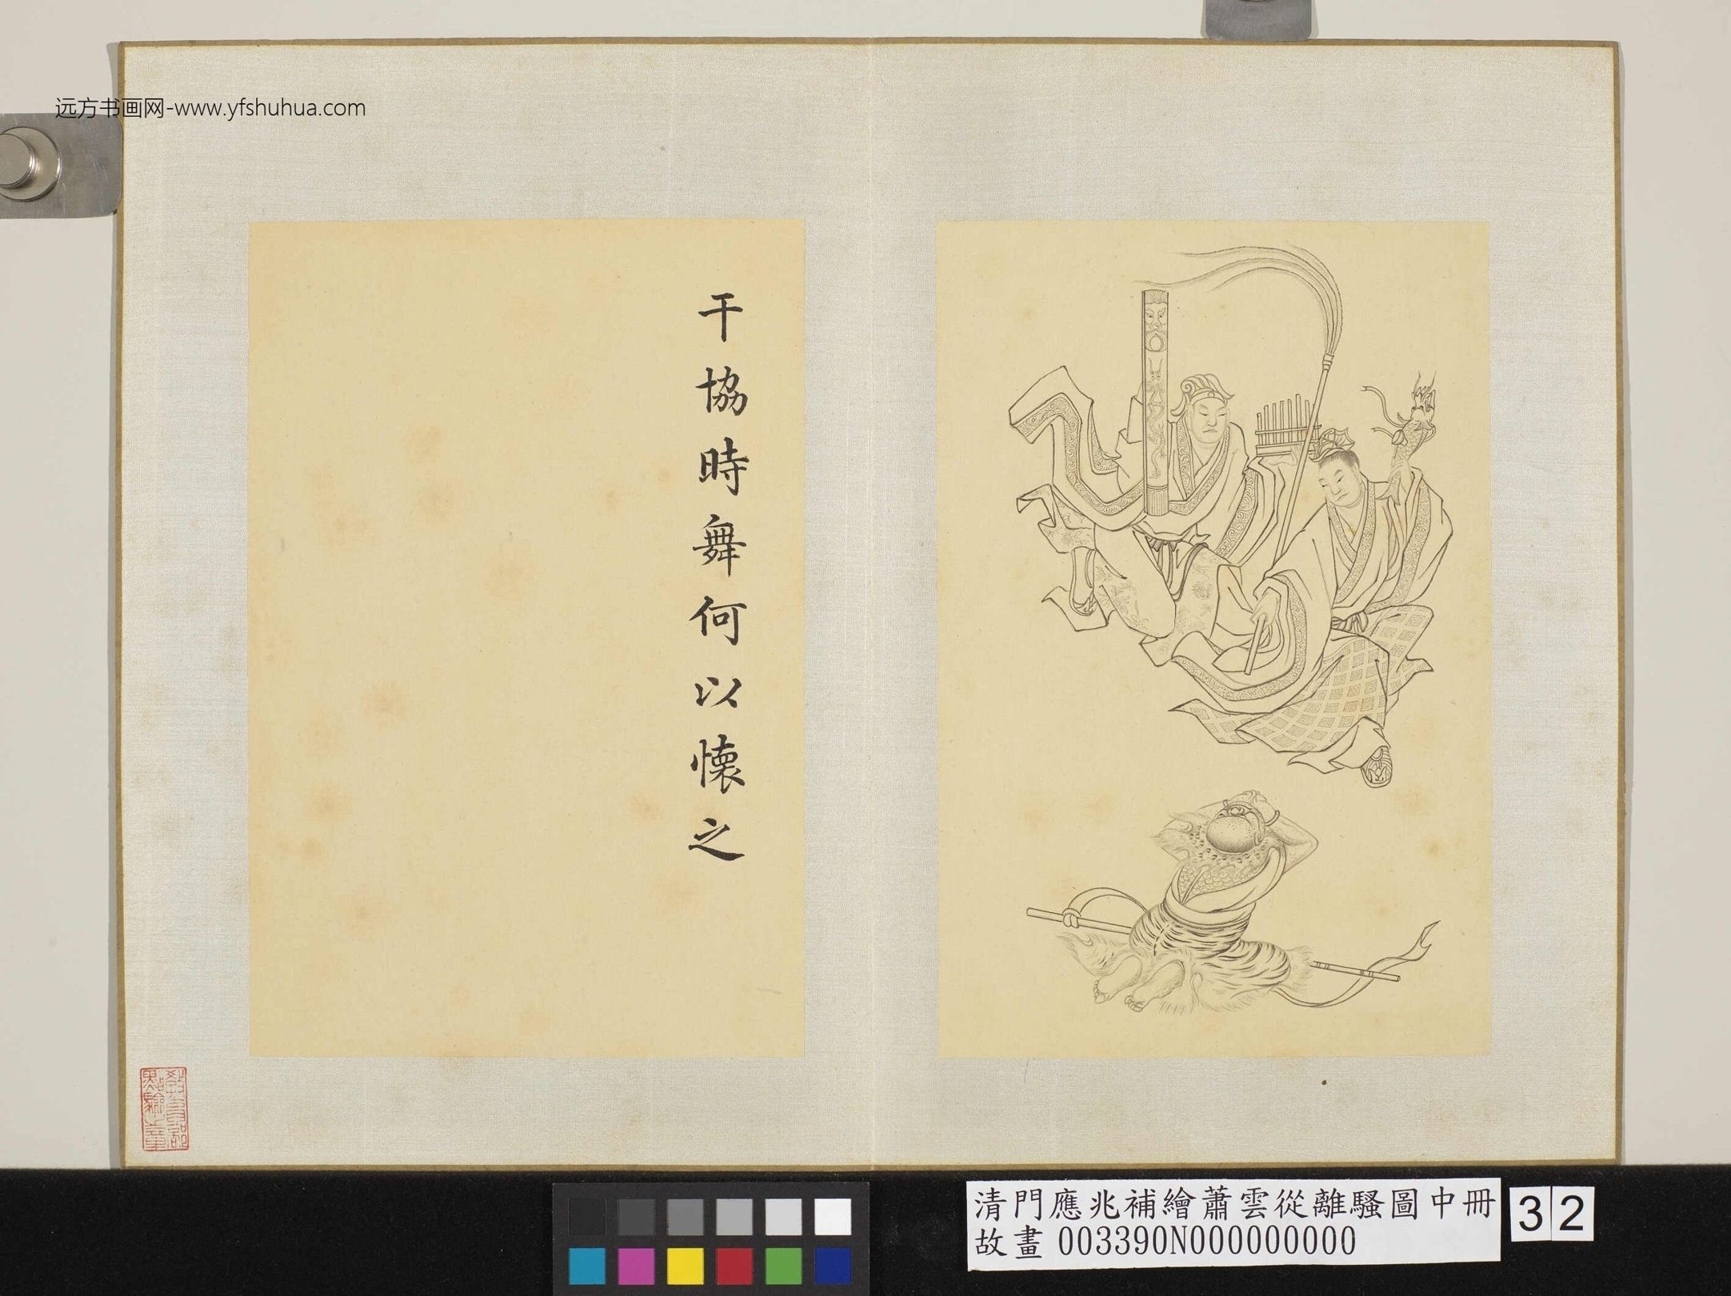 远方书画网-www.yfshuhua.com
干協時舞何以懷之
教育部
點驗之章
清門應兆補繪蕭雲從離騷圖中冊
故畫 003390N000000000
32